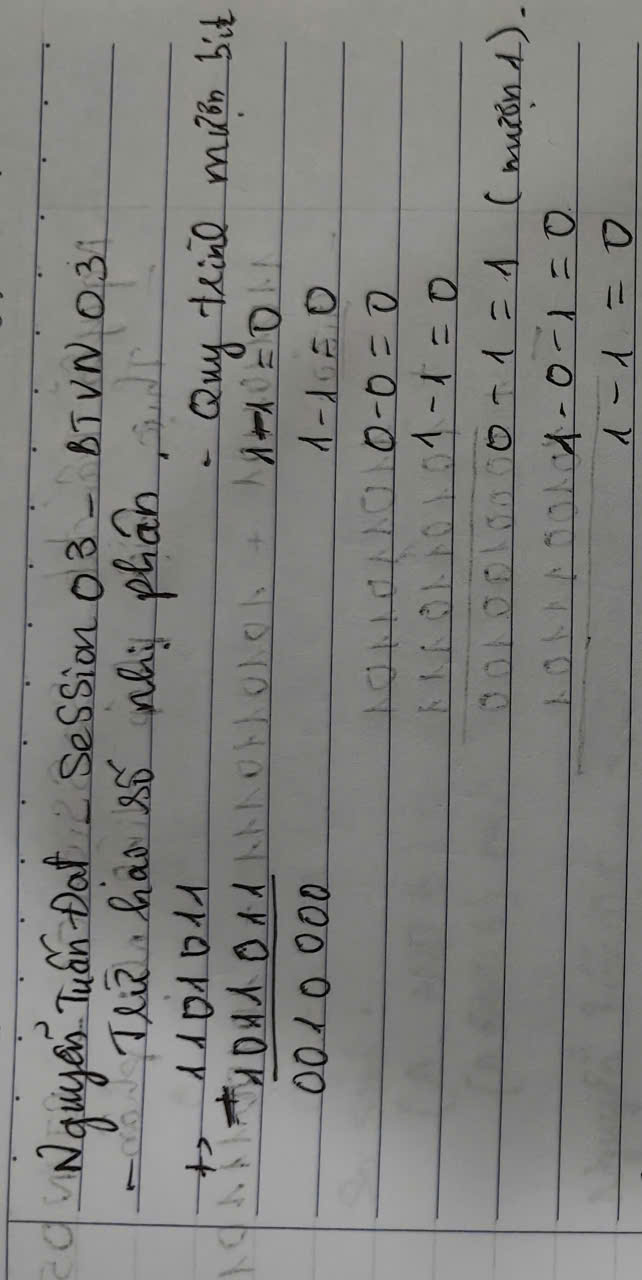 Nguyễn Tuấn Đạt - Session 03 - BTVN 03
- Trừ hai số nhị phân.
+> 1101011
- 1011011
0010000
- Quy trình mượn bit
1-1=0
1-1=0
0-0=0
1-1=0
0-1=1 (mượn 1).
1-0-1=0
1-1=0